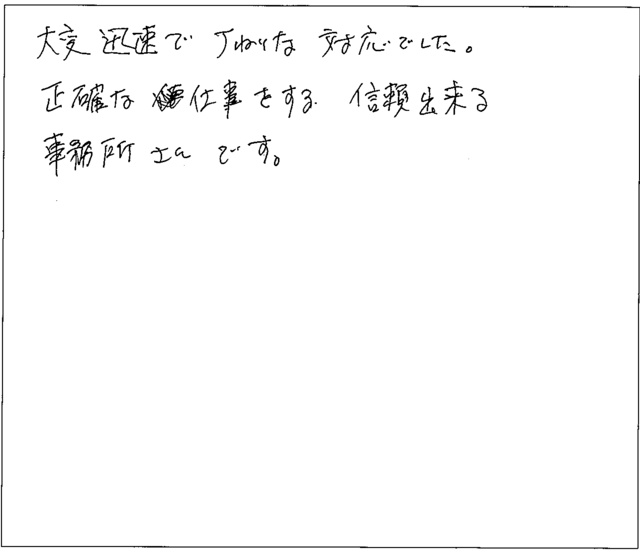 大変迅速で丁ねいな 対応でした。
正確な仕事をする 信頼出来る
事務所さんです。